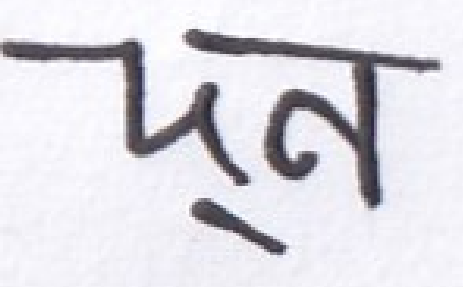 দূন